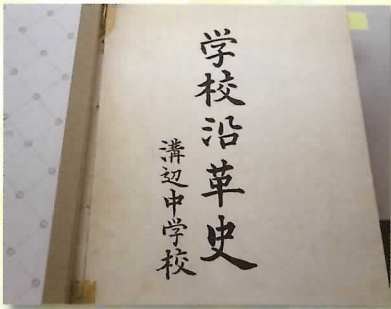 学校沿革史
溝辺中学校